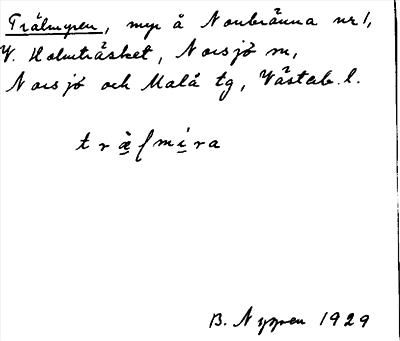 Trälmyren, myr å Norrbränna nr 1,
V. Holmträsket, Norsjö sn,
Norsjö och Malå tg, Västerb. l.
träſmira
B. Nygren 1929